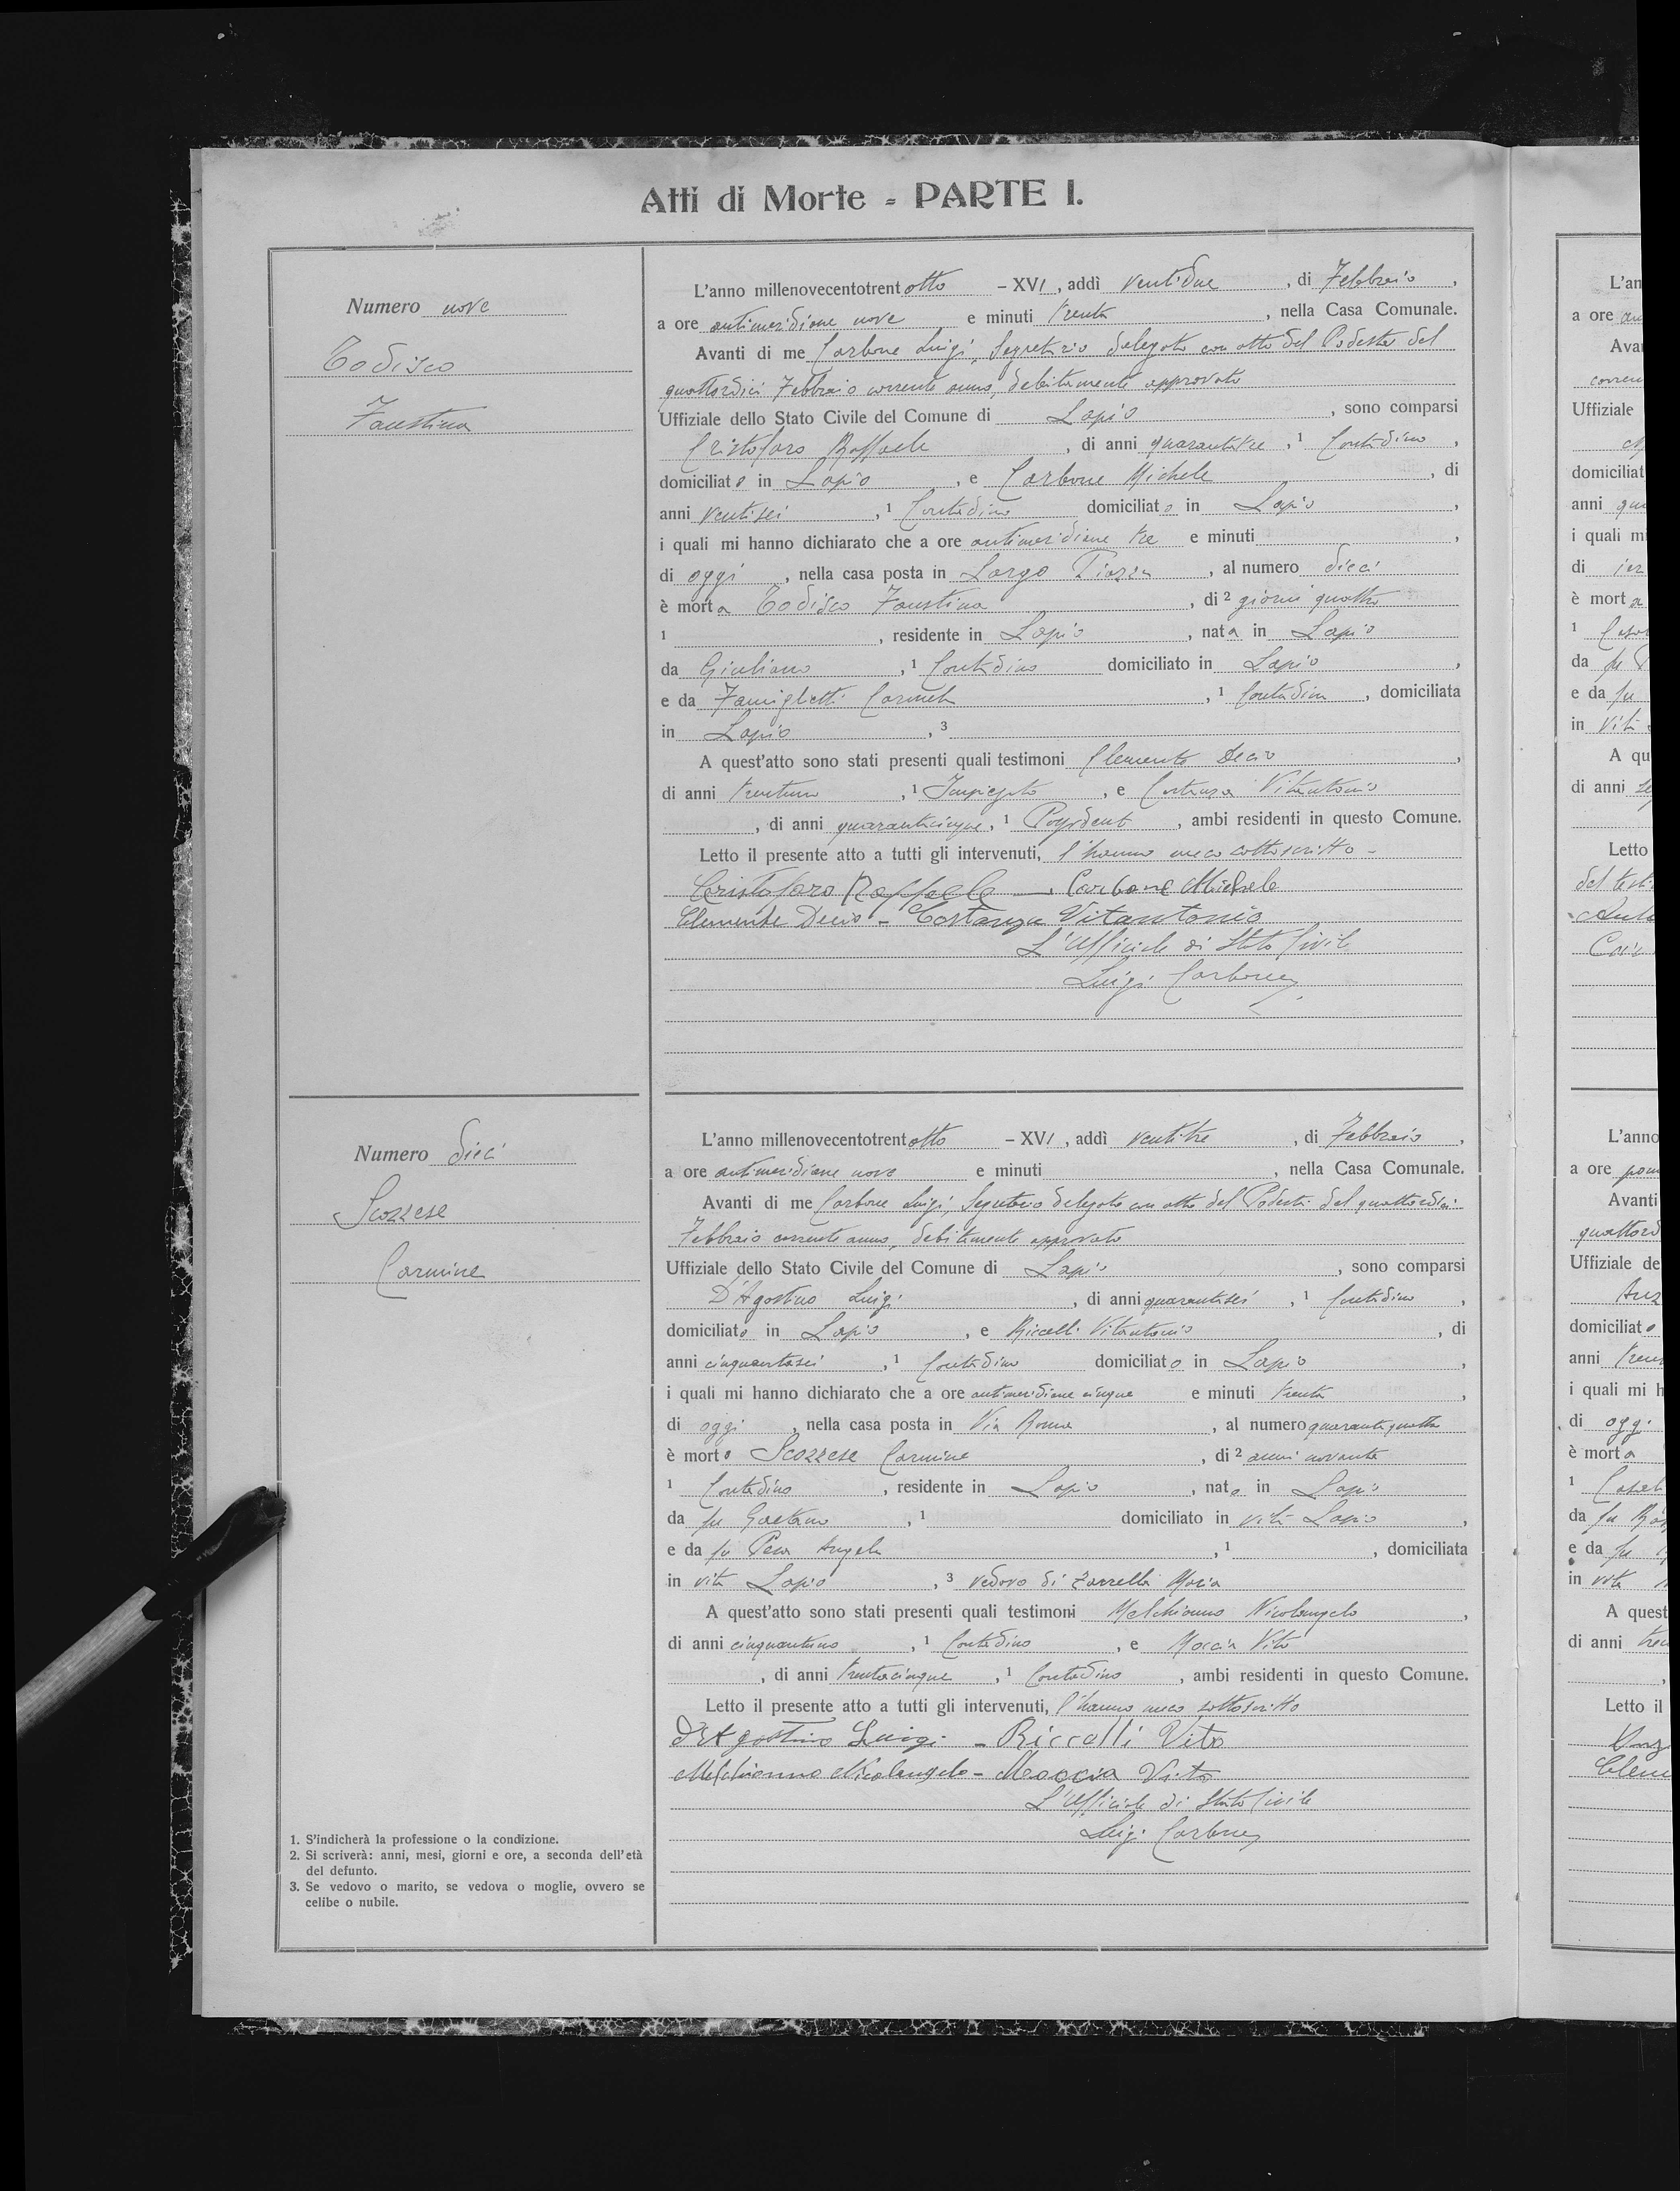 Atti di Morte - PARTE I.
Numero nove
Todisco
Faustina
L'anno millenovecentotrentotto – XVI, addì ventidue, di Febbraio,
a ore antimeridiane nove e minuti trenta, nella Casa Comunale.
Avanti di me Carbone Luigi, Segretario delegato con atto del Podestà del
quattordici Febbraio corrente anno, debitamente approvato
Uffiziale dello Stato Civile del Comune di Lapio, sono comparsi
Cristofaro Raffaele, di anni quarantatre, 1 Contadino,
domiciliato in Lapio, e Carbone Michele, di
anni ventisei, 1 Contadino domiciliato in Lapio,
i quali mi hanno dichiarato che a ore antimeridiane tre e minuti,
di oggi, nella casa posta in Largo Piazza, al numero dieci
è morta Todisco Faustina, di 2 giorni quattro
1, residente in Lapio, nata in Lapio
da Giuliano, 1 Contadino domiciliato in Lapio,
e da Famiglietti Carmela, 1 Contadina, domiciliata
in Lapio, 3
A quest'atto sono stati presenti quali testimoni Clemente Decio,
di anni trentuno, 1 Impiegato, e Costanza Vitantonio
, di anni quarantacinque, 1 Possidente, ambi residenti in questo Comune.
Letto il presente atto a tutti gli intervenuti, l'hanno meco sottoscritto -
Cristofaro Raffaele — Carbone Michele
Clemente Decio - Costanza Vitantonio
L'Ufficiale di Stato Civile
Luigi Carbone
Numero dieci
Scozzese
Carmine
L'anno millenovecentotrentotto – XVI, addì ventitre, di Febbraio,
a ore antimeridiane nove e minuti, nella Casa Comunale.
Avanti di me Carbone Luigi, Segretario delegato con atto del Podestà del quattordici
Febbraio corrente anno, debitamente approvato
Uffiziale dello Stato Civile del Comune di Lapio, sono comparsi
D'Agostino Luigi, di anni quarantasei, 1 Contadino,
domiciliato in Lapio, e Riccelli Vitantonio, di
anni cinquantasei, 1 Contadino domiciliato in Lapio,
i quali mi hanno dichiarato che a ore antimeridiane cinque e minuti trenta,
di oggi, nella casa posta in Via Roma, al numero quarantaquattro
è morto Scozzese Carmine, di 2 anni novanta
1 Contadino, residente in Lapio, nato in Lapio
da fu Gaetano, 1 domiciliato in vita Lapio,
e da fu Pesa Angela, 1, domiciliata
in vita Lapio, 3 vedovo di Zarrella Maria
A quest'atto sono stati presenti quali testimoni Melchionno Nicolangelo,
di anni cinquantuno, 1 Contadino, e Moccia Vito
, di anni trentacinque, 1 Contadino, ambi residenti in questo Comune.
Letto il presente atto a tutti gli intervenuti, l'hanno meco sottoscritto
D'Agostino Luigi - Riccelli Vito
Melchionno Nicolangelo - Moccia Vito
L'Ufficiale di Stato Civile
Luigi Carbone
1. S'indicherà la professione o la condizione.
2. Si scriverà: anni, mesi, giorni e ore, a seconda dell'età
del defunto.
3. Se vedovo o marito, se vedova o moglie, ovvero se
celibe o nubile.
L'an
a ore
Avan
Uffiziale
domiciliat
anni
i quali m
di ieri
è morta
1
da fu
e da fu
in vita
A qu
di anni
Letto
L'anno
a ore pom
Avanti
quattord
Uffiziale de
domiciliato
anni
i quali mi h
di oggi
è morta
1
da fu
e da fu
in vita
A quest
di anni
Letto il